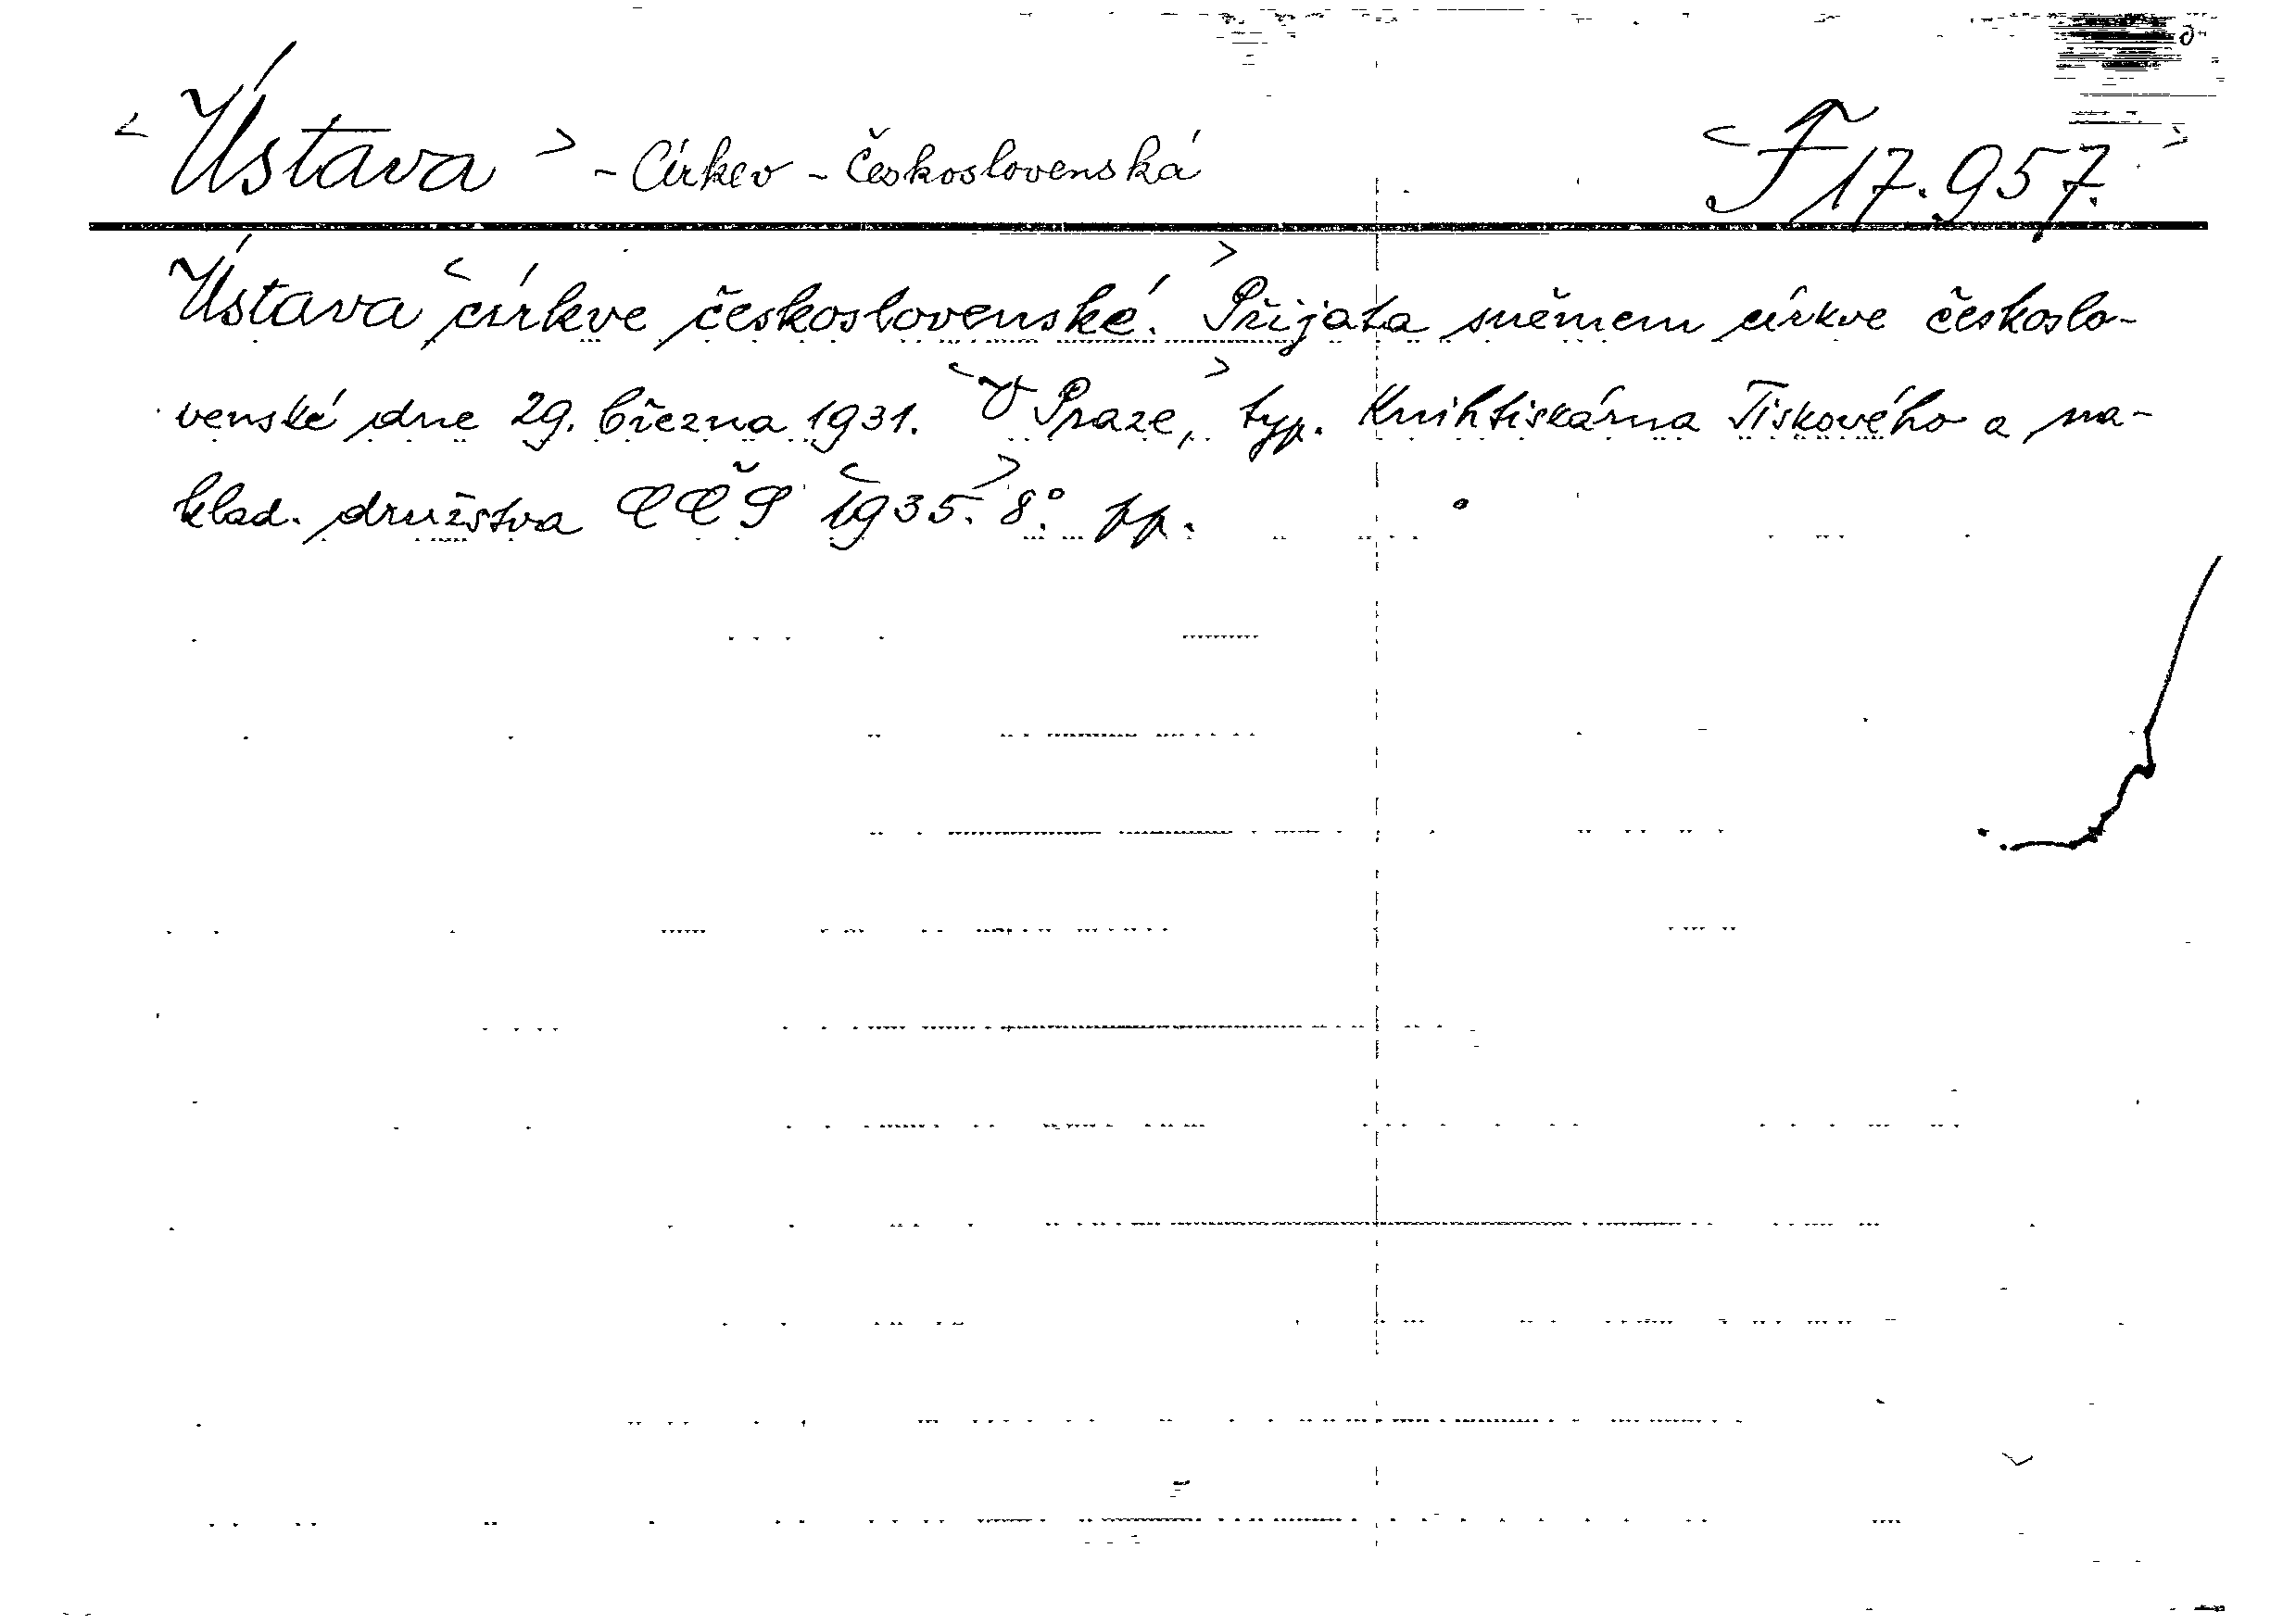 < Ústava > - Církev - Československá < F 17.957. >
Ústava < církve československé. > Přijata sněmem církve českoslo-
venské dne 29. března 1931. < V Praze, > typ. Knihtiskárna Tiskového a na-
klad. družstva CČS < 1935. > 8°. pp.